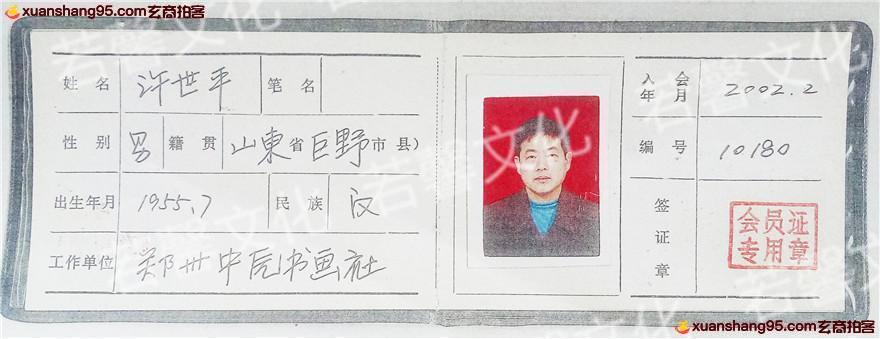 xuanshang95.com玄商拍客
xuanshang95.com玄商拍客
姓名 许世平 笔名
性别 男 籍贯 山東省巨野市县)
出生年月 1955.7 民族 汉
工作单位 郑州中院书画社
入会年月 2002.2
编号 10180
签证章
会员证
专用章
若馨文化
xuanshang95.com玄商拍客
xuanshang95.com玄商拍客